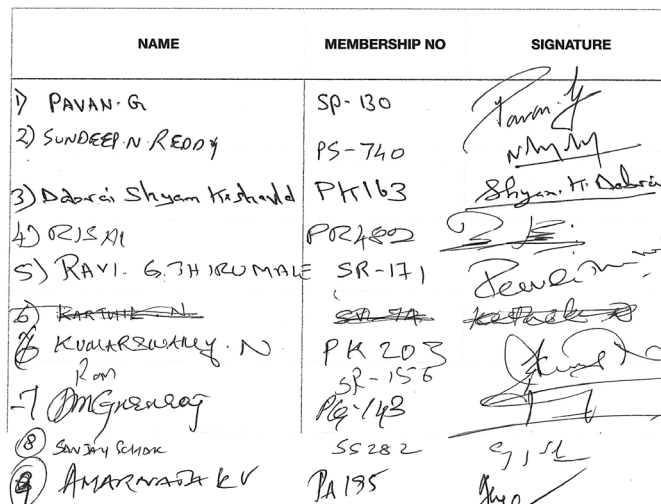 NAME MEMBERSHIP NO SIGNATURE
1) PAVAN.G SP-130 Pavan.G
2) SUNDEEP.N.REDDY PS-740
3) Dabrai Shyam Keshavld PK163 Shyam.K.Dabrai
4) RISAI
5) RAVI. G.THIRUMALE SR-171
6) KARTHIK.N
KUMARSWAMY.N PK203
Ram SR-156
7 PG-143
8 SANJAY SS282
9 AMARNATH KV PA195